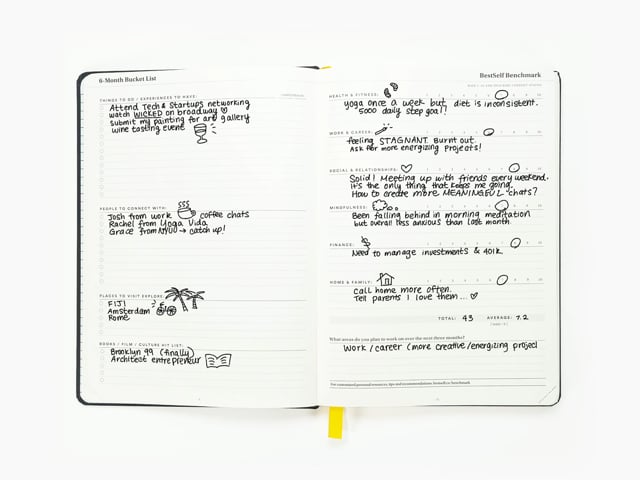 6-Month Bucket List
THINGS TO DO / EXPERIENCES TO HAVE:
Attend Tech & Startups networking
watch WICKED on broadway
submit my painting for art gallery
wine tasting event
PEOPLE TO CONNECT WITH:
Josh from work coffee chats
Rachel from Yoga Vida
Grace from NYUU → catch up!
PLACES TO VISIT EXPLORE:
FIJI
Amsterdam
Rome
BOOKS / FILM / CULTURE HIT LIST:
Brooklyn 99 (finally)
Architect entrepreneur
BestSelf Benchmark
HEALTH & FITNESS:
yoga once a week but diet is inconsistent.
5000 daily step goal?
WORK & CAREER:
feeling STAGNANT. Burnt out.
Ask for more energizing projects!
SOCIAL & RELATIONSHIPS:
Solid! Meeting up with friends every weekend.
it's the only thing that keeps me going.
How to create more MEANINGFUL chats?
MINDFULNESS:
Been falling behind in morning meditation
but overall less anxious than last month.
FINANCE:
Need to manage investments & 401k
HOME & FAMILY:
Call home more often.
Tell parents I love them...
TOTAL: 43 AVERAGE: 7.2
What areas do you plan to work on over the next three months?
Work / career (more creative/energizing project
For customized personal resources, tips and recommendations: bestself.co/benchmark